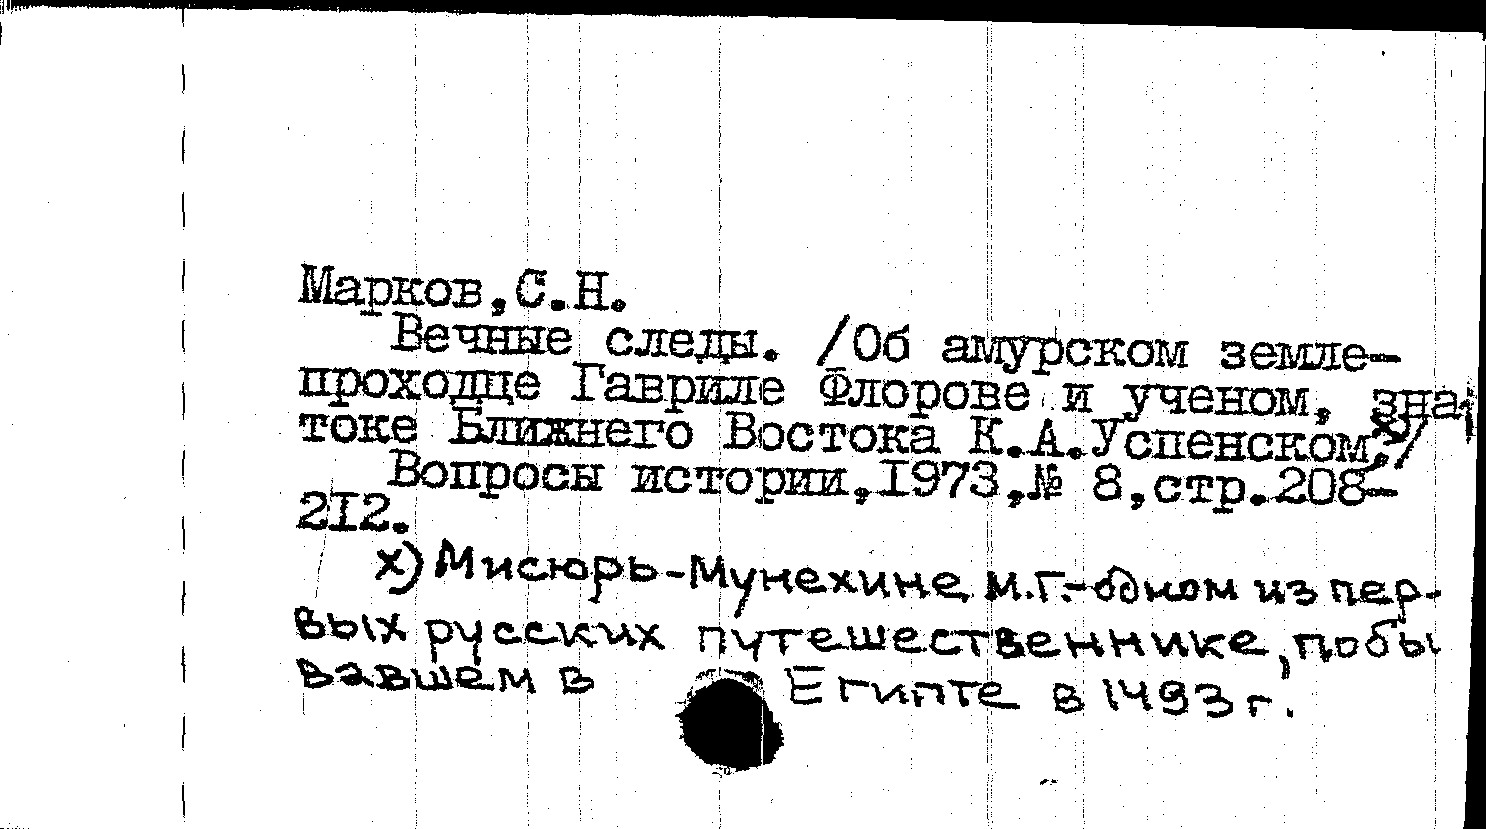 Марков,С.Н.
Вечные следы. /Об амурском земле-
проходце Гавриле Флорове и ученом, зна-
токе Ближнего Востока К.А.Успенском.х)/
Вопросы истории,I973,№ 8,стр.208-
2I2.
х) Мисюрь-Мунехине М.Г.-одном из пер-
вых русских путешественнике, побы
вавшем в Египте в 1493 г.